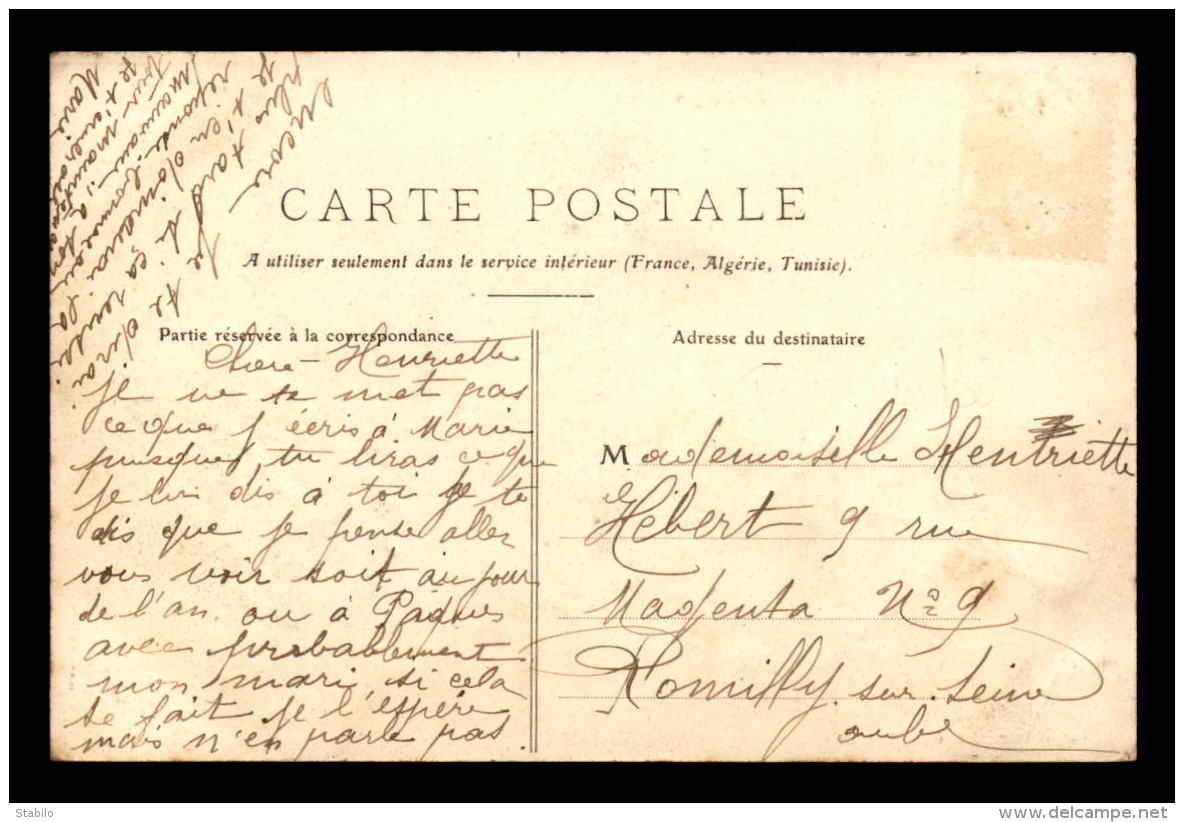 CARTE POSTALE
A utiliser seulement dans le service intérieur (France, Algérie, Tunisie).
Partie réservée à la correspondance
Chère - Henriette
je ne te met pas
ce que j écris à Marie
puisque tu liras ce que
je lui dis à toi je te
dis que je pense aller
vous voir soit au jour
de l'an. ou à Pâques
avec probablement
mon mari, si cela
se fait je l'espère
mais n'en parle pas.
encore
plus tard je te dirai
je t'en
réponse. comme
Marie
Adresse du destinataire
Mademoiselle Henriette
Hébert 9 rue
Magenta No 9
Romilly sur Seine
aube
Stabilo
www.delcampe.net